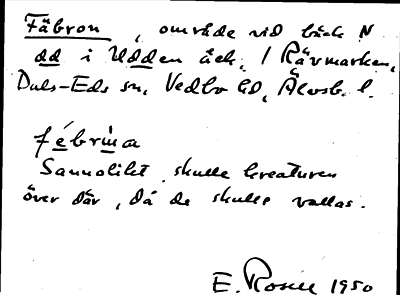 Fäbron, område vid bäck N
dd i Udden äck. / Rävmarken,
Dals-Eds sn, Vedbo hd, Älvsb. l.
fé̱brω̇na
Sannolikt skulle kreaturen
över där, då de skulle vallas.
E. Rosell 1950